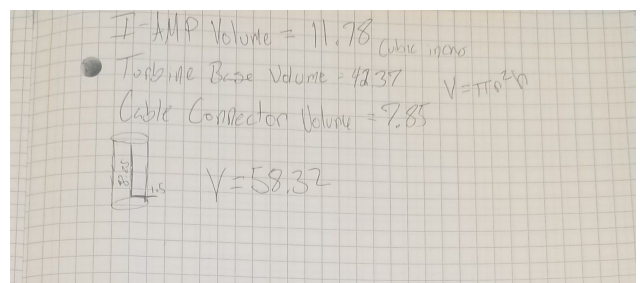 I-AMP Volume = 11.78 Cubic inches
Turbine Base Volume = 42.37 V=πr²h
Cable Connector Volume = 7.85
8.25
1.5
V=58.32